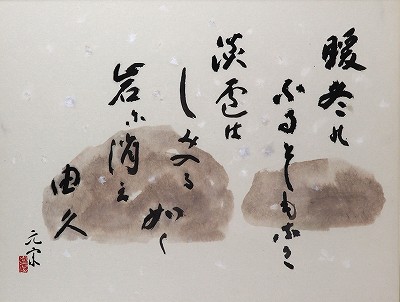 暖冬乃
ふるとしもなき
淡雪は
しみ入る如く
岩尓消え
由久
元宋